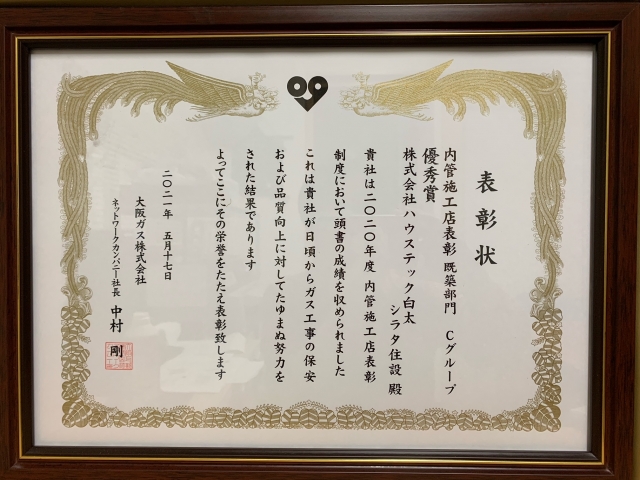 表彰状
内管施工店表彰 既築部門 Cグループ
優秀賞
株式会社ハウステック白太
シラタ住設 殿
貴社は二〇二〇年度 内管施工店表彰
制度において頭書の成績を収められました
これは貴社が日頃からガス工事の保安
および品質向上に対してたゆまぬ努力を
された結果であります
よってここにその栄誉をたたえ表彰致します
二〇二一年 五月十七日
大阪ガス株式会社
ネットワークカンパニー社長 中村 剛